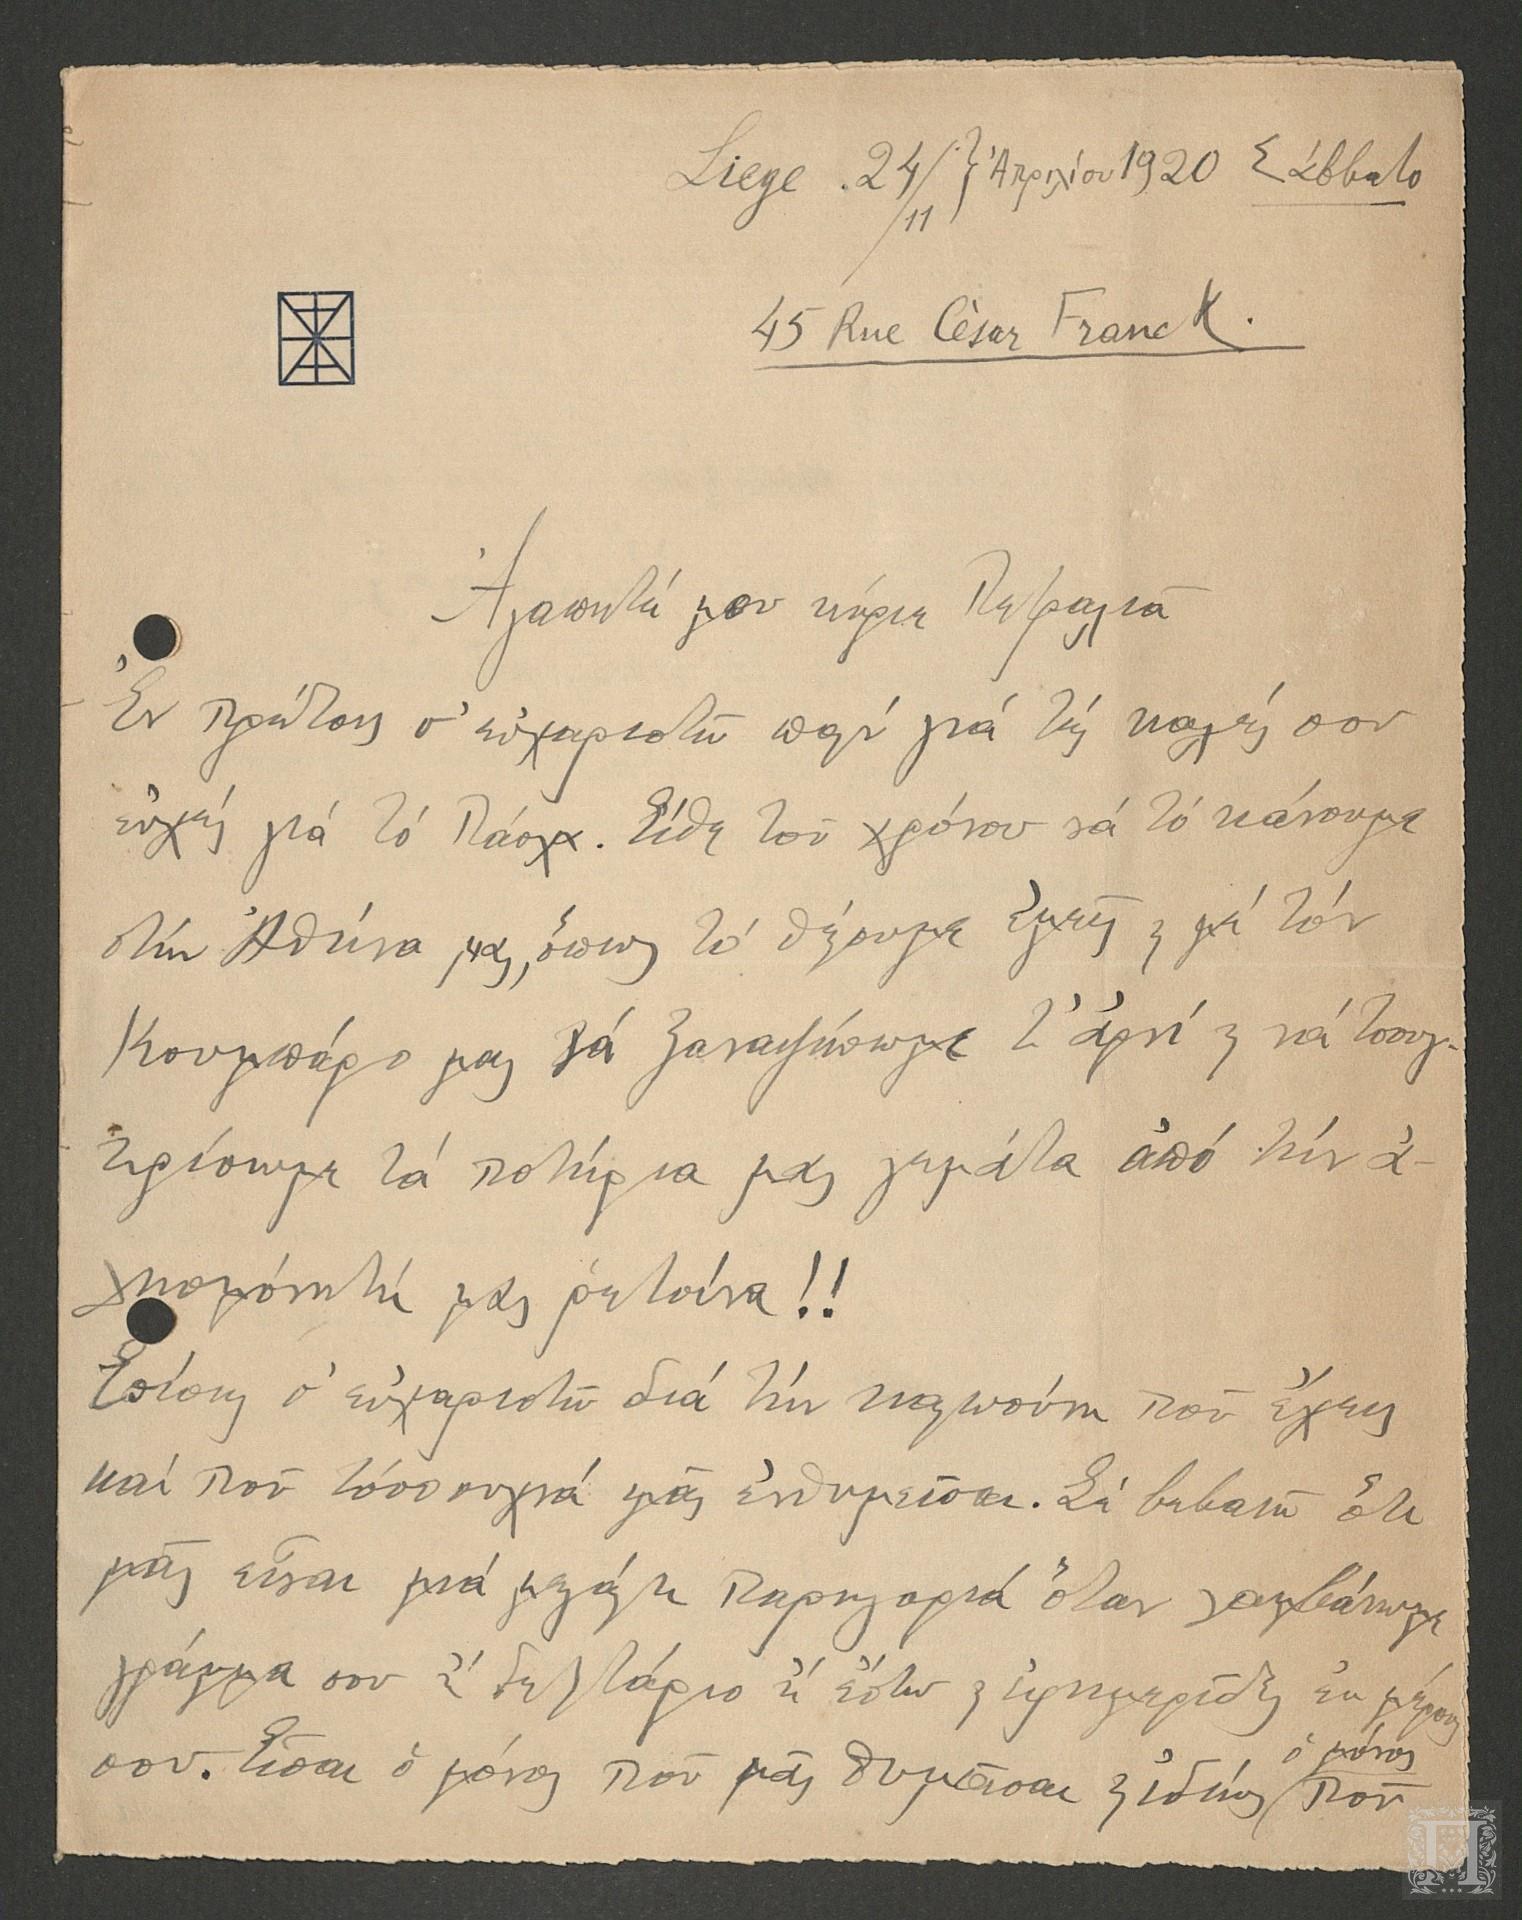 Liege . 24/11 } Ἀπριλίου 1920 Σάββατο
45 Rue Cèsar Franck.
Ἀγαπητέ μου κύριε Πεφαλιᾶ
Ἐν πρώτοις σ' εὐχαριστῶ πολύ γιά τής καλές σου
εὐχές γιά τό Πάσχα. Εἴθε τοῦ χρόνου νά τό κάνουμε
στήν Ἀθήνα μας, ὅπως τό θέλουμε ἐμεῖς κ μέ τόν
Κουμπάρο μας νά ξαναψήσωμε τ' ἀρνί κ νά τσουγ-
κρίσωμε τά ποτήρια μας γεμάτα ἀπό τήν ἀ-
λησμόνητή μας ρετσίνα!!
Ἐπίσης σ' εὐχαριστῶ διά τήν καλωσύνη ποῦ ἔχεις
καί ποῦ τόσο συχνά μᾶς ἐνθυμεῖσαι. Σέ βεβαιῶ ὅτι
μᾶς εἶναι μιά μεγάλη παρηγοριά ὅταν λαμβάνωμε
γράμμα σου ἤ δελτάριο ἤ ἔστω κ ἐφημερίδες ἐκ μέρους
σου. Εἶσαι ὁ μόνος ποῦ μᾶς θυμᾶσαι κ ἰδίως ὁ μόνος ποῦ